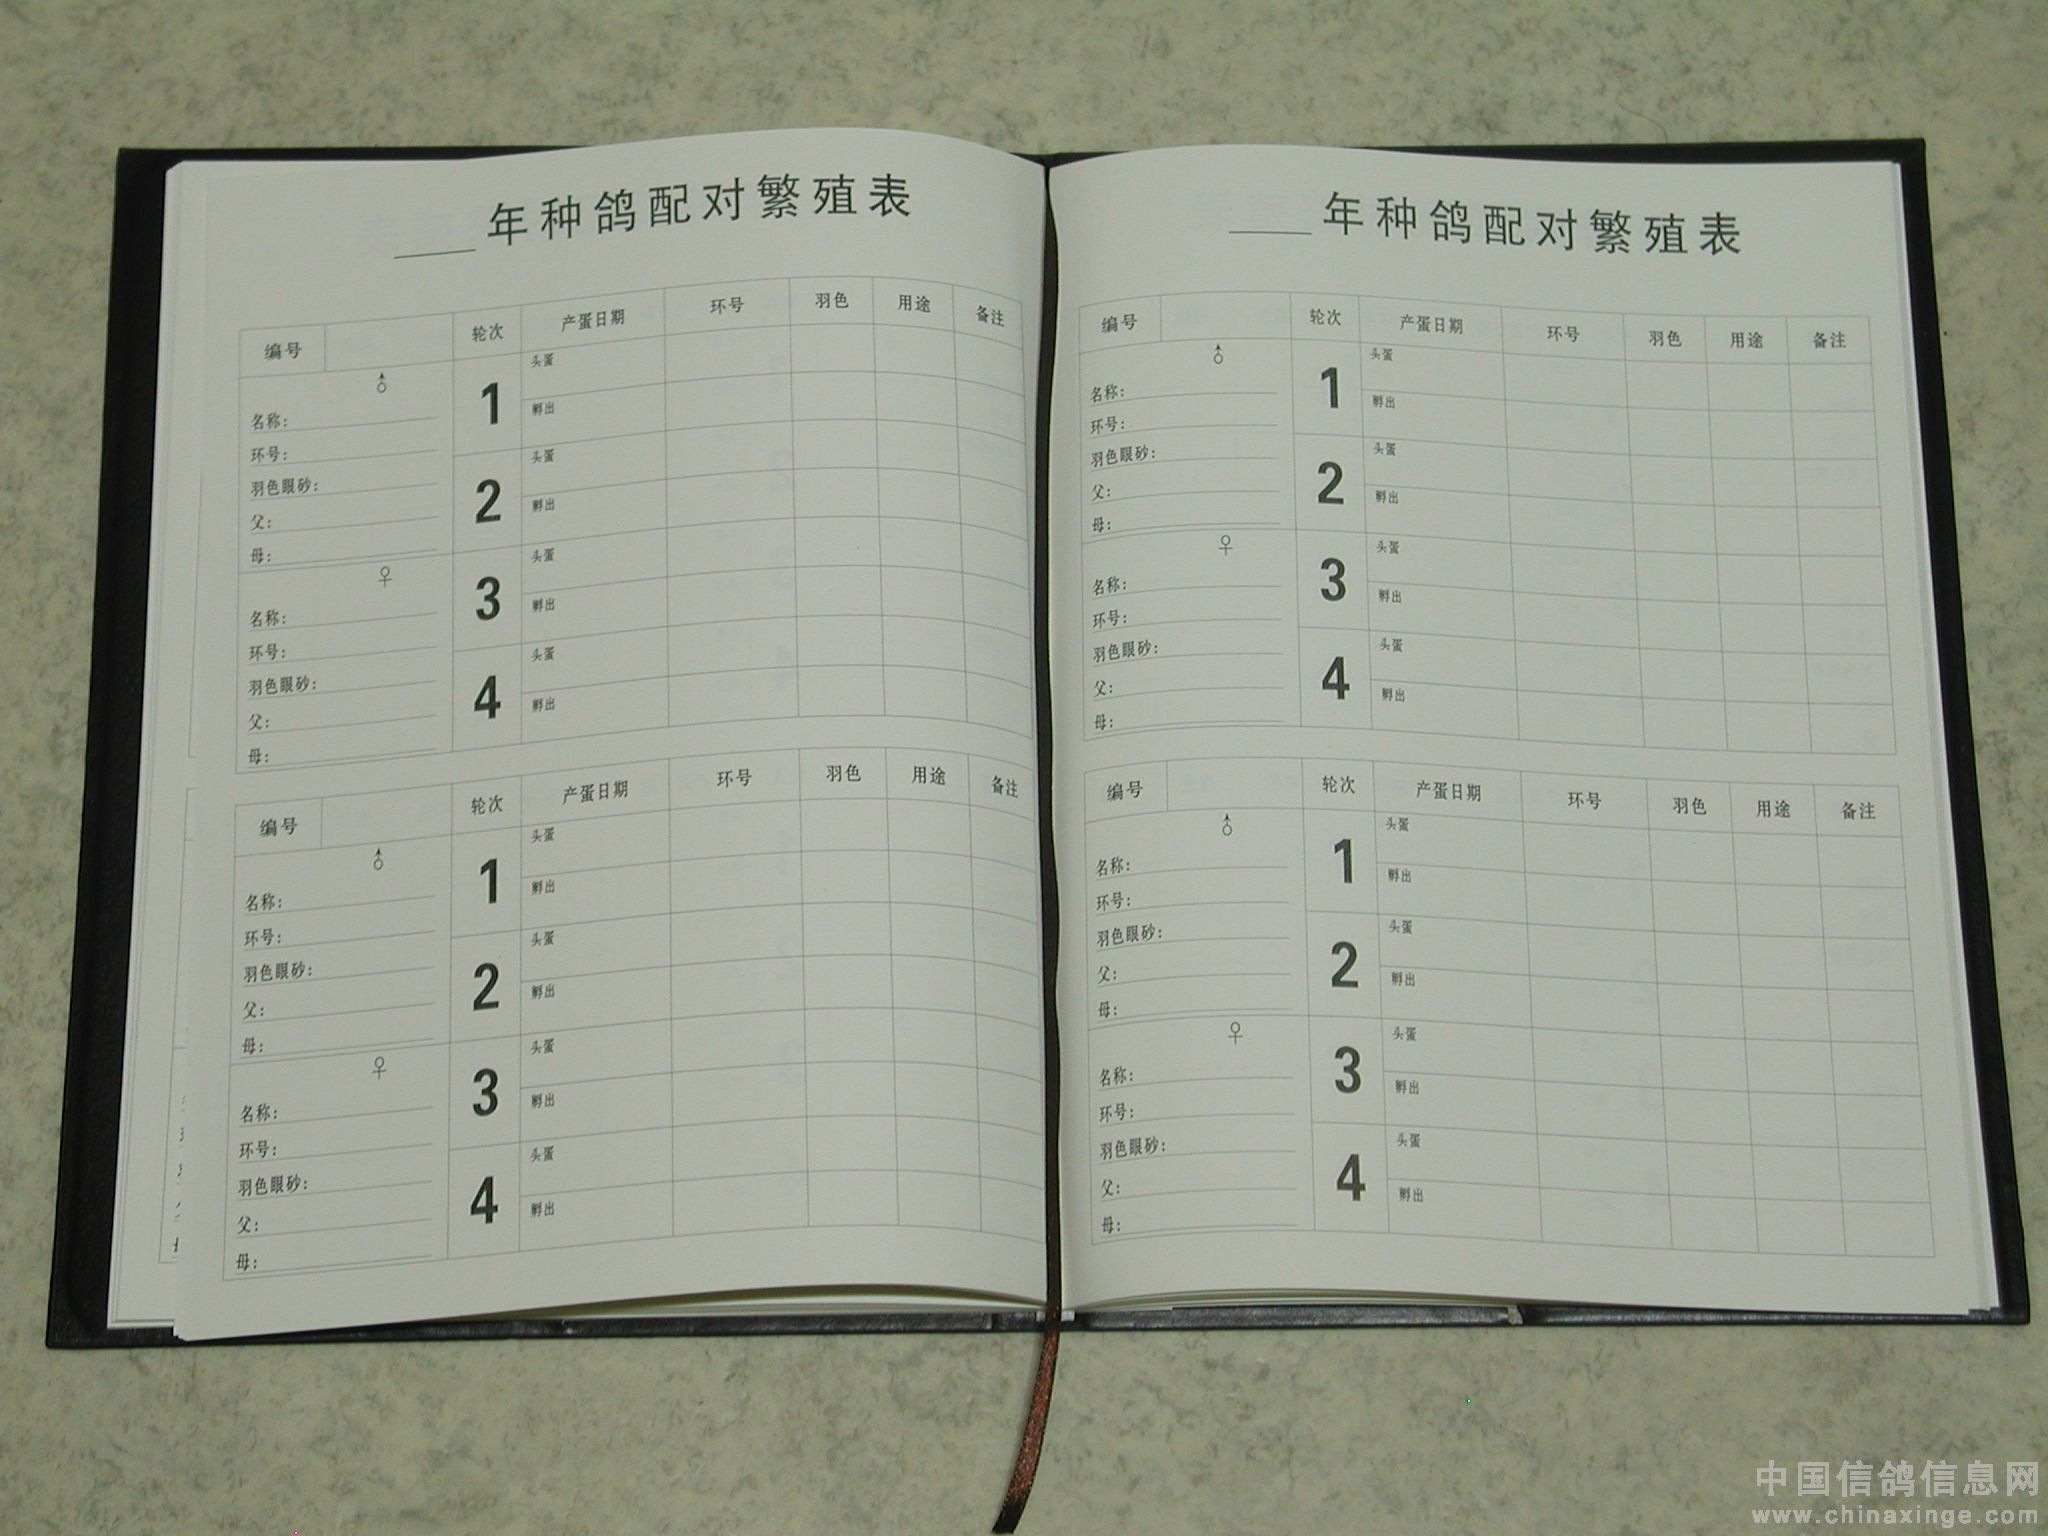 ____年种鸽配对繁殖表
编号 轮次 产蛋日期 环号 羽色 用途 备注
♂
名称:
环号:
羽色眼砂:
父:
母:
♀
名称:
环号:
羽色眼砂:
父:
母:
1 头蛋
孵出
2 头蛋
孵出
3 头蛋
孵出
4 头蛋
孵出
编号 轮次 产蛋日期 环号 羽色 用途 备注
♂
名称:
环号:
羽色眼砂:
父:
母:
♀
名称:
环号:
羽色眼砂:
父:
母:
1 头蛋
孵出
2 头蛋
孵出
3 头蛋
孵出
4 头蛋
孵出
____年种鸽配对繁殖表
编号 轮次 产蛋日期 环号 羽色 用途 备注
♂
名称:
环号:
羽色眼砂:
父:
母:
♀
名称:
环号:
羽色眼砂:
父:
母:
1 头蛋
孵出
2 头蛋
孵出
3 头蛋
孵出
4 头蛋
孵出
编号 轮次 产蛋日期 环号 羽色 用途 备注
♂
名称:
环号:
羽色眼砂:
父:
母:
♀
名称:
环号:
羽色眼砂:
父:
母:
1 头蛋
孵出
2 头蛋
孵出
3 头蛋
孵出
4 头蛋
孵出
中国信鸽信息网
www.chinaxinge.com